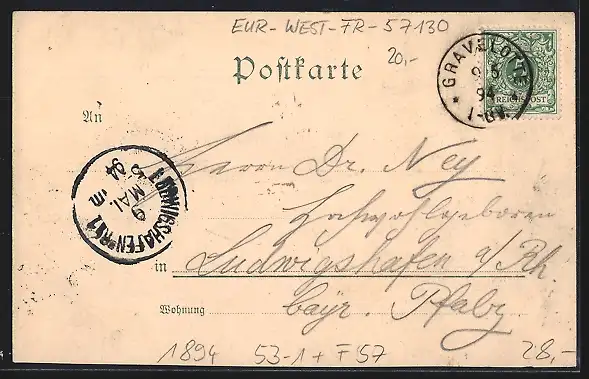 EUR-WEST-FR-57130
20,-
Postkarte
GRAVELOTTE
9 5
94
REICHSPOST
An
Herrn Dr. Ney
Hochwohlgeboren
9 MAI
94
in Ludwigshafen a/Rh.
Wohnung bayr. Pfalz
1894 53-1 + F57 28,-